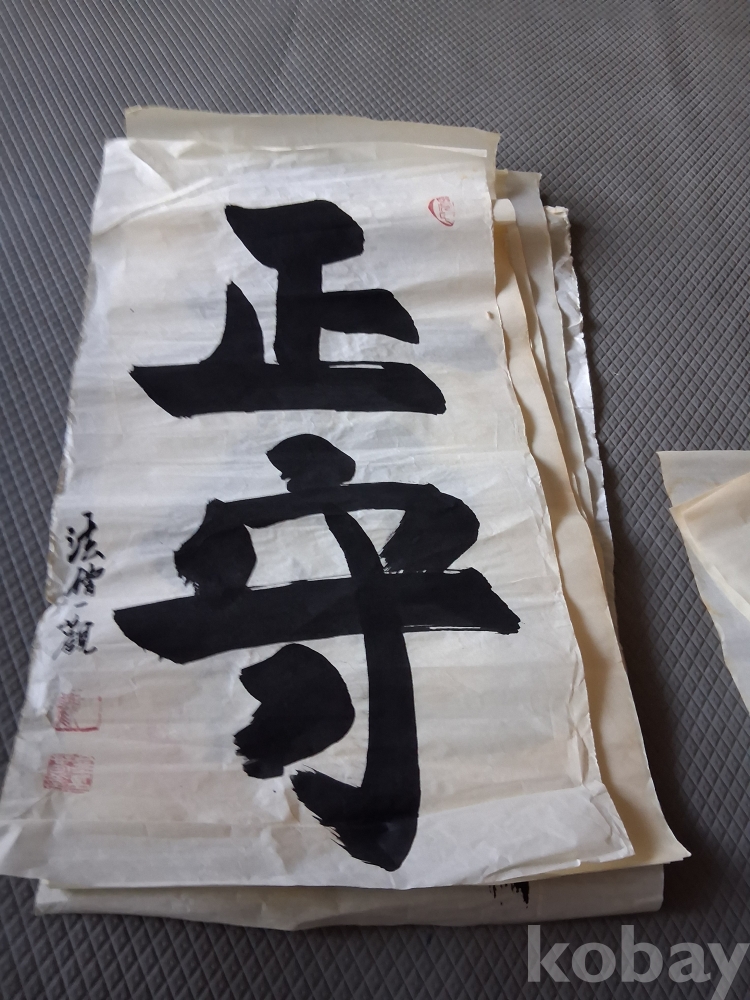 正守
法僧一觀
kobay